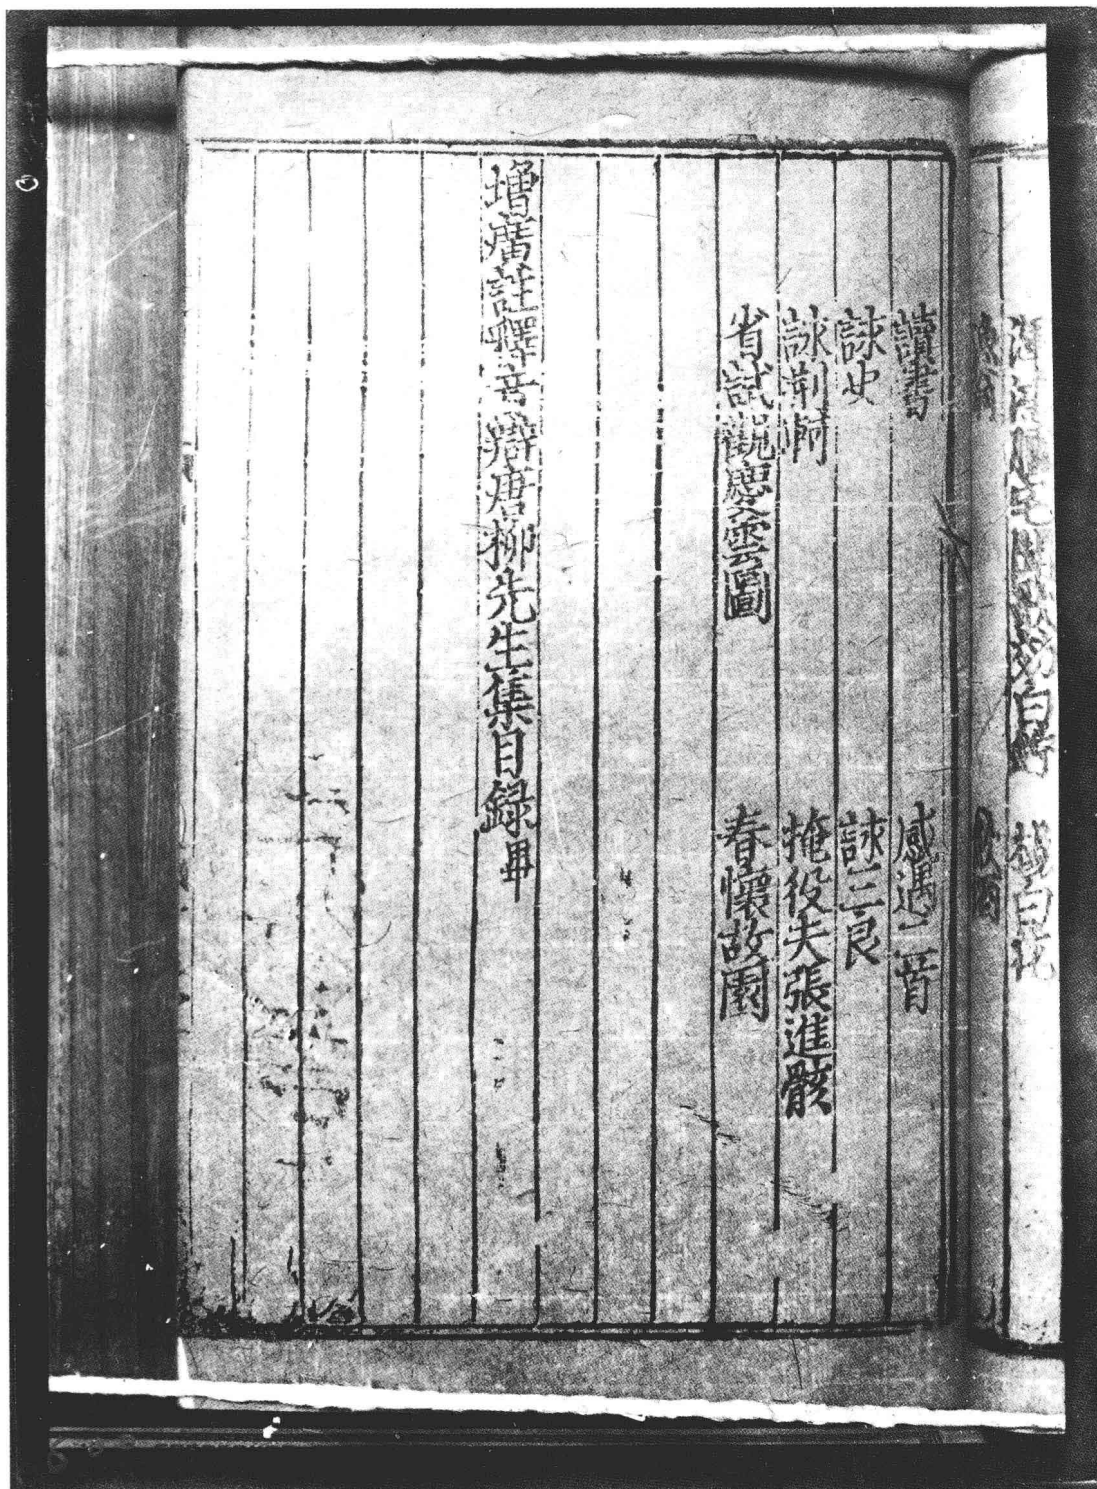 楊白花
讀書 感遇二首
詠史 詠三良
詠荊軻 掩役夫張進骸
省試觀慶雲圖 春懷故園
增廣註釋音辯唐柳先生集目錄畢